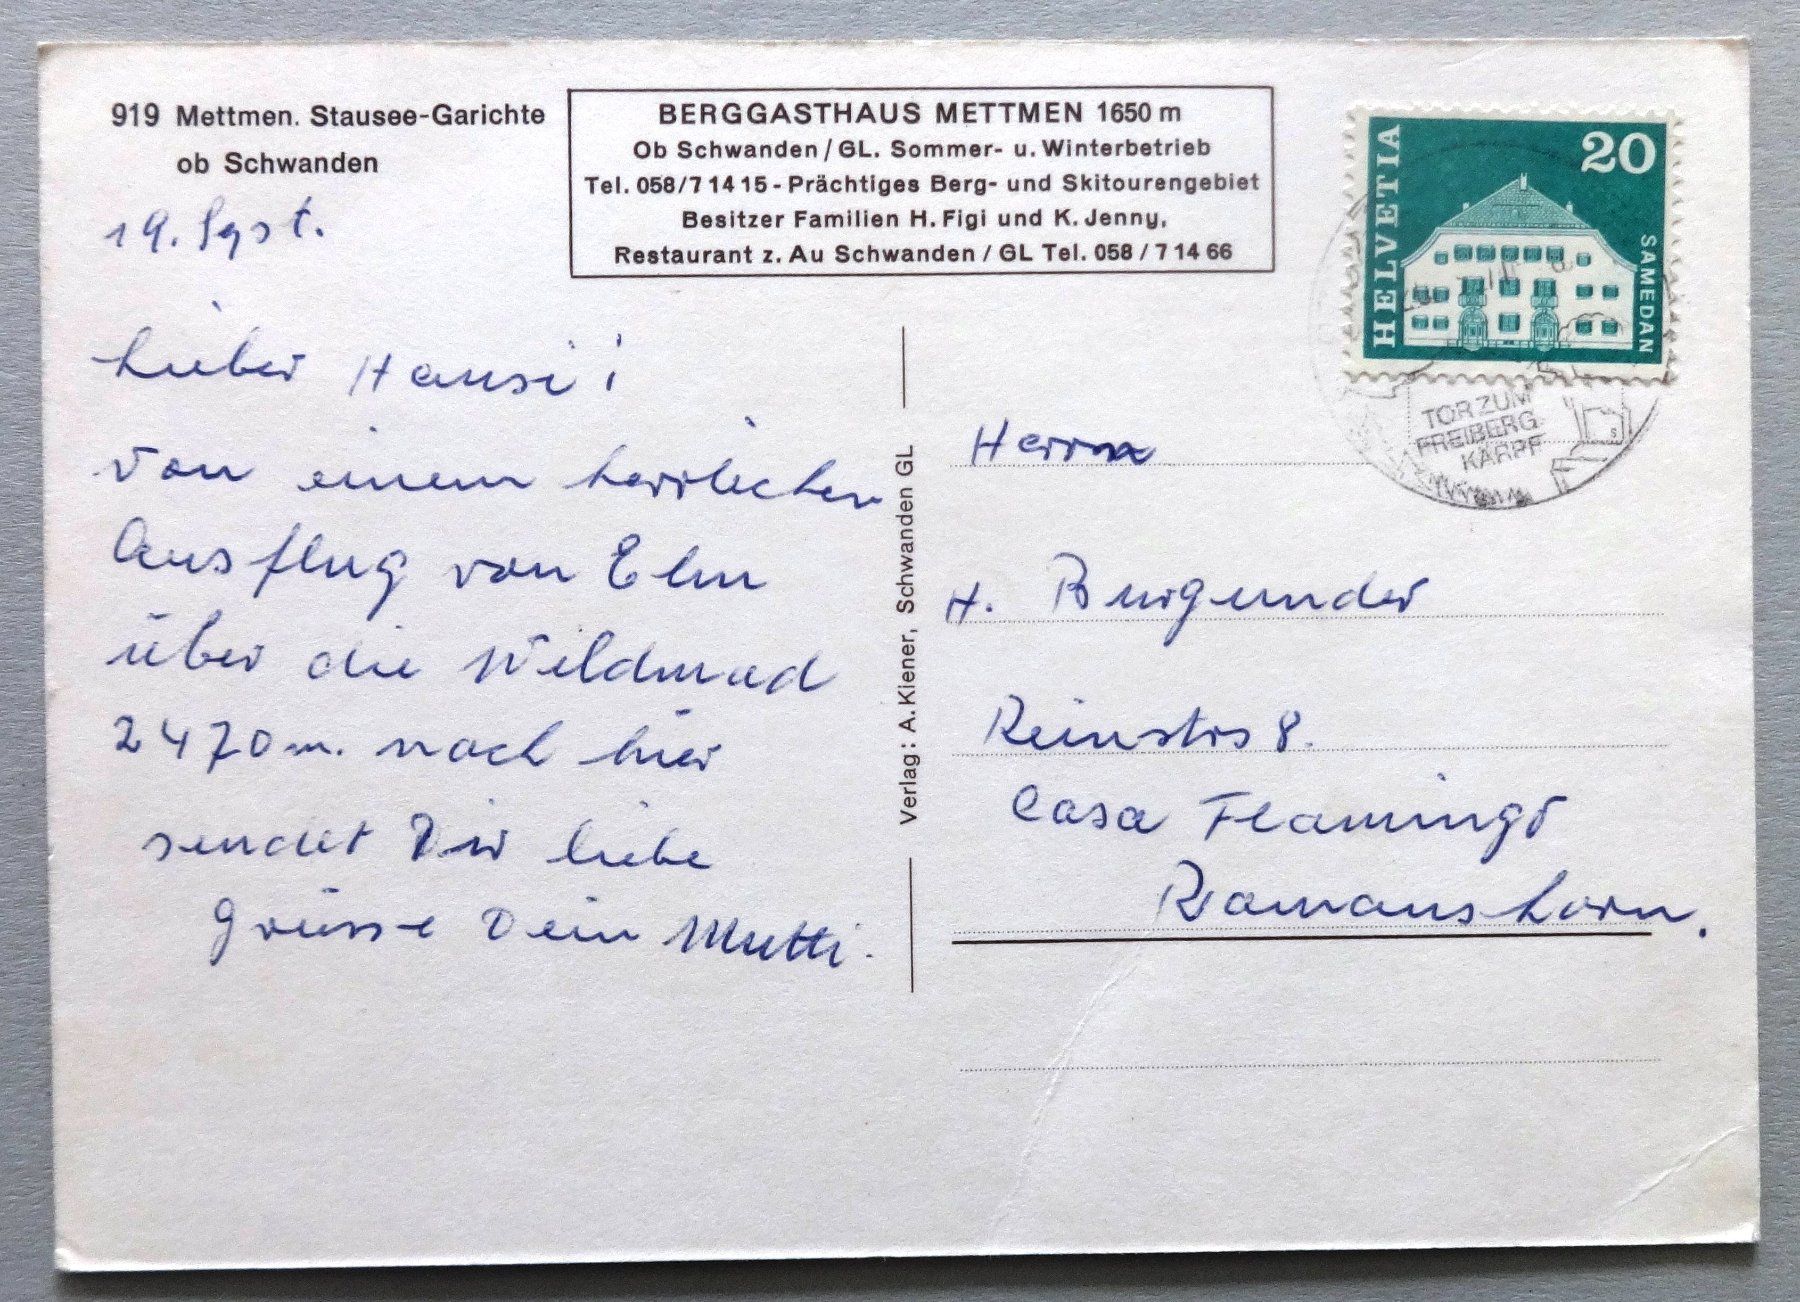 919 Mettmen. Stausee-Garichte
ob Schwanden
BERGGASTHAUS METTMEN 1650 m
Ob Schwanden/GL. Sommer- u. Winterbetrieb
Tel. 058/7 14 15 - Prächtiges Berg- und Skitourengebiet
Besitzer Familien H. Figi und K. Jenny,
Restaurant z. Au Schwanden / GL Tel. 058 / 7 14 66
HELVETIA
20
SAMEDAN
TOR ZUM
FREIBERG
KÄRPF
19. Sept.
Lieber Hansi!
Von einem herrlichen
Ausflug von Elm
über die Wildmad
2470 m. nach hier
sendet Dir liebe
Grüsse Dein Mutti.
Verlag: A. Kiener, Schwanden GL
Herrn
H. Burgunder
8.
Casa Flamingo
Romanshorn.